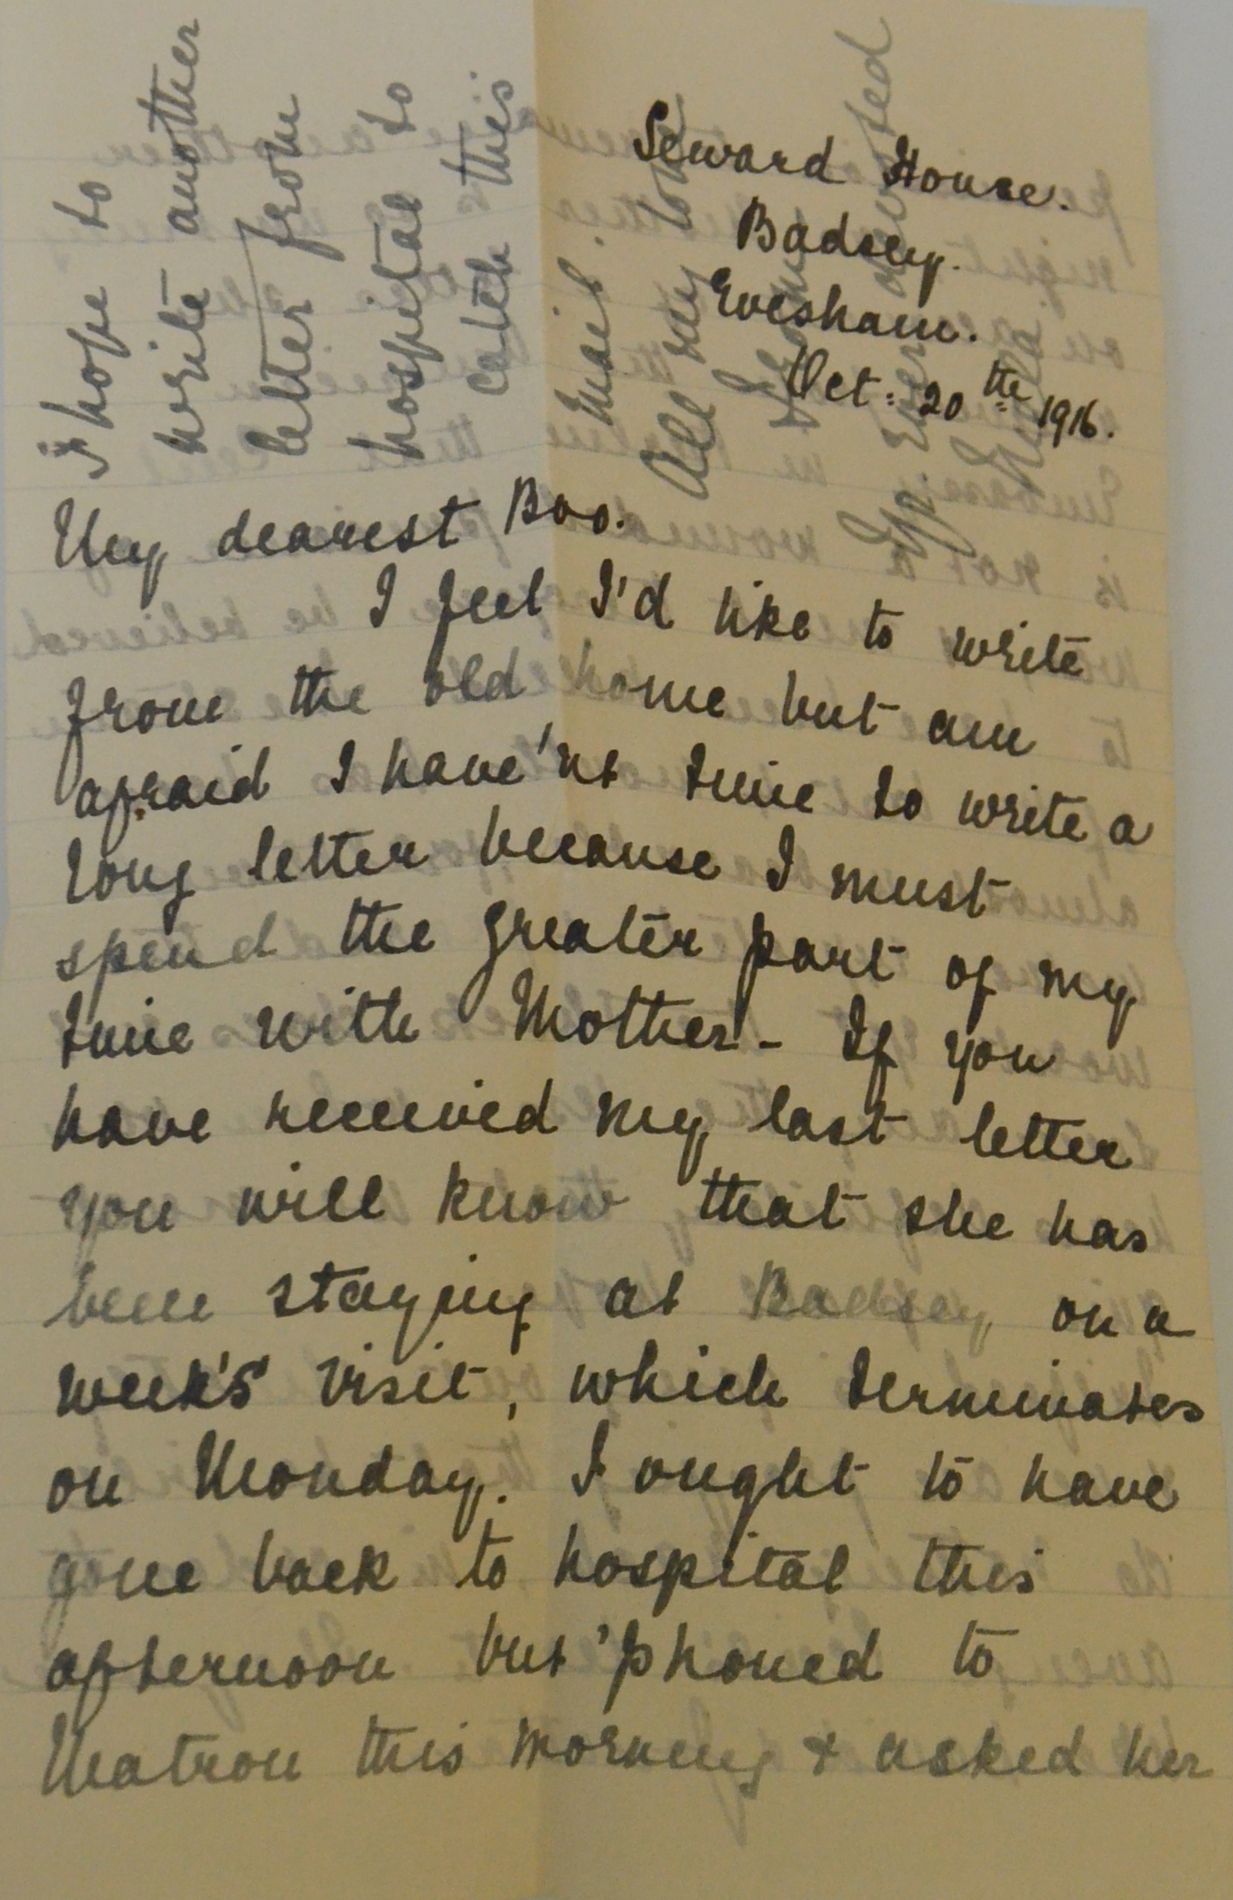 Seward House.
Badsey.
Evesham.
Oct: 20th 1916.
My dearest Boo.
I feel I'd like to write
from the old home but am
afraid I have'nt time to write a
long letter because I must
spend the greater part of my
time with Mother - If you
have received my last letter
you will know that she has
been staying at Badsey on a
week's visit, which terminates
on Monday. I ought to have
gone back to hospital this
afternoon but 'phoned to
Matron this morning & asked her
I hope to
write another
letter from
hospital to
catch this
mail.
All my love
from
Yr. Ever devoted